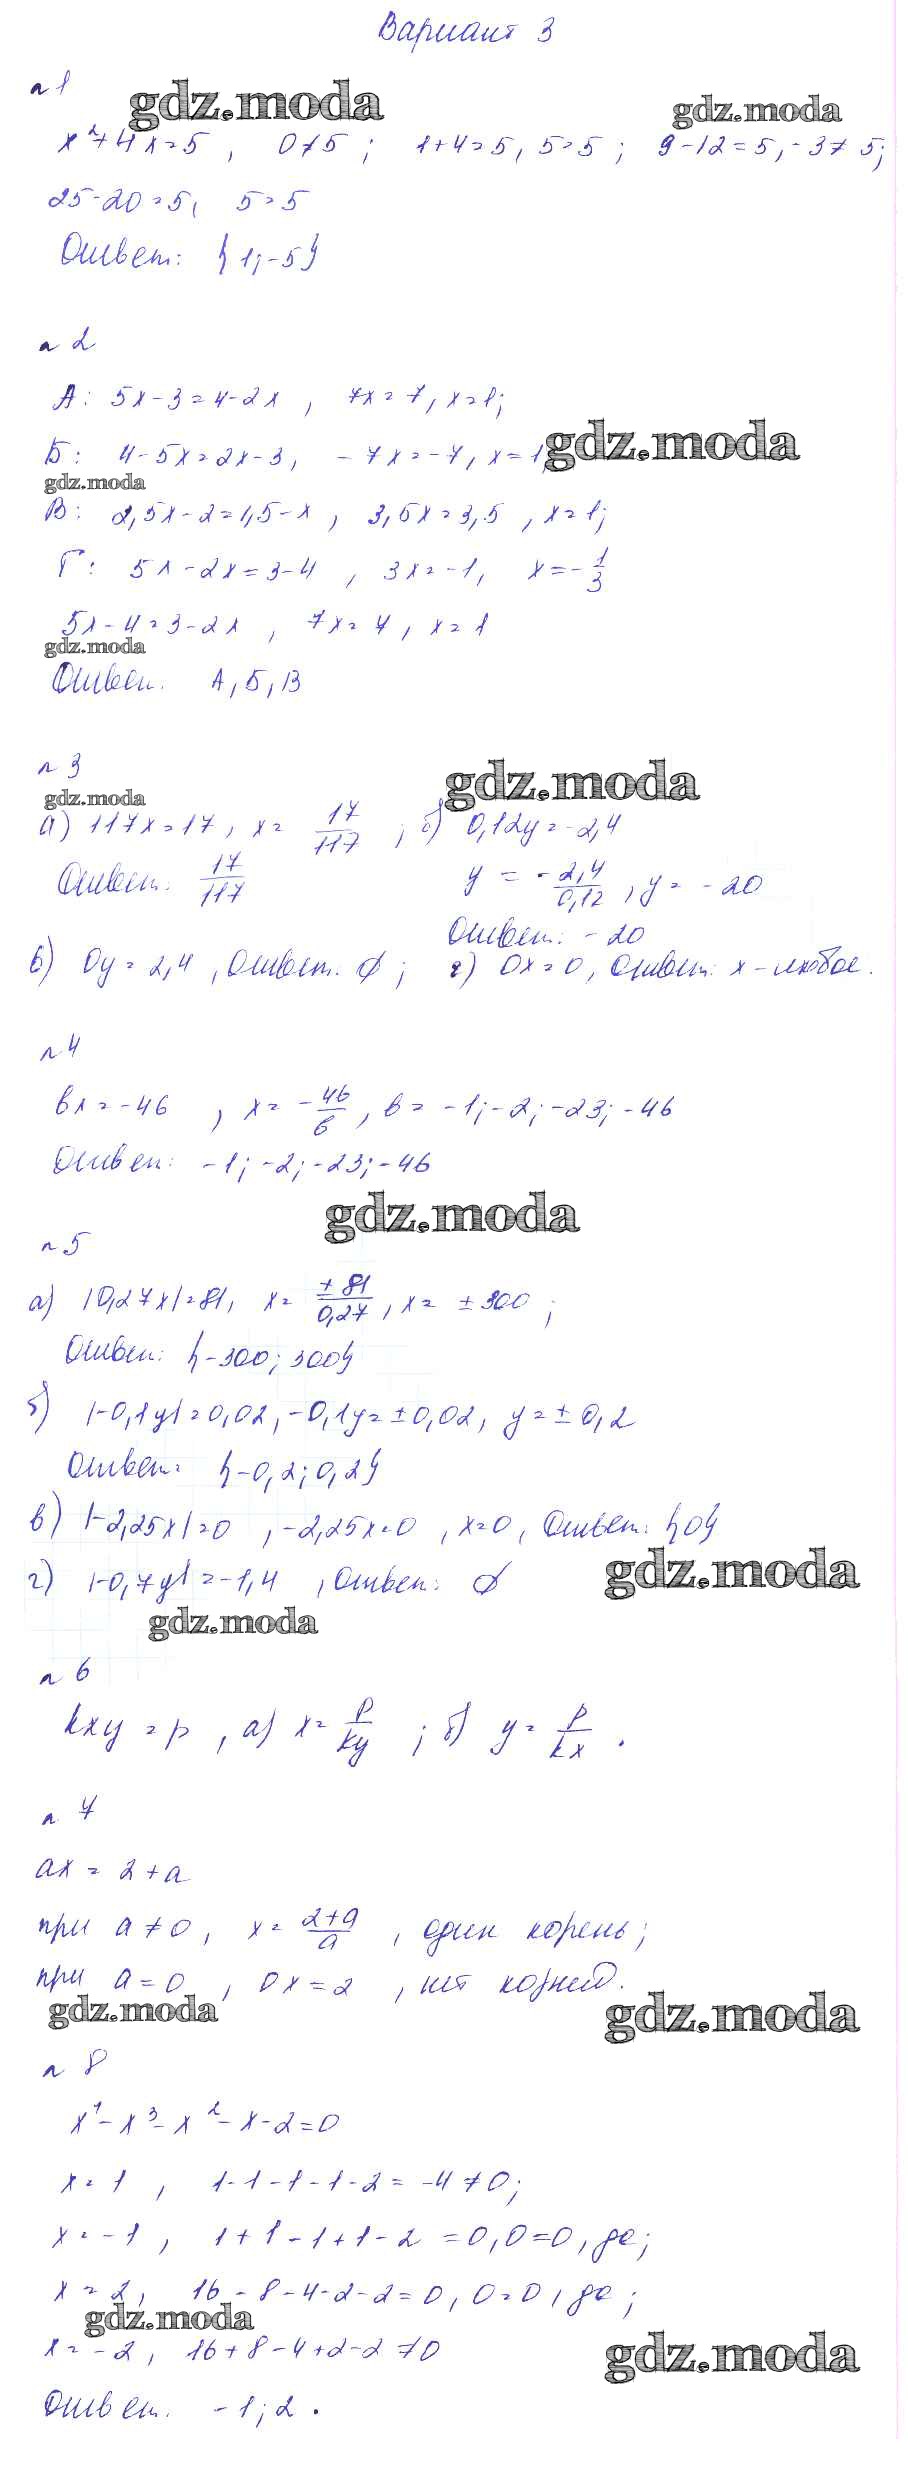 Вариант 3
№1
gdz.moda gdz.moda
x²+4x=5, 0≠5; 1+4=5, 5=5; 9-12=5, -3≠5;
25-20=5, 5=5
Ответ: {1;-5}
№2
А: 5x-3=4-2x, 7x=7, x=1;
Б: 4-5x=2x-3, -7x=-7, x=1,
gdz.moda
gdz.moda
В: 2,5x-2=1,5-x, 3,5x=3,5, x=1;
Г: 5x-2x=3-4, 3x=-1, x=-1/3
5x-4=3-2x, 7x=7, x=1
gdz.moda
Ответ: А, Б, В
№3
gdz.moda
gdz.moda
а) 117x=17, x= 17/117; б) 0,12y=-2,4
Ответ: 17/117 y = -2,4/0,12, y= -20
Ответ: -20
в) 0y=2,4, Ответ: ∅; г) 0x=0, Ответ: x-любое.
№4
bx=-46, x=-46/b, b= -1;-2;-23;-46
Ответ: -1;-2;-23;-46
gdz.moda
№5
а) |0,27x|=81, x= ±81/0,27, x= ±300;
Ответ: {-300; 300}
б) |-0,1y|=0,02, -0,1y=±0,02, y=±0,2
Ответ: {-0,2; 0,2}
в) |-2,25x|=0, -2,25x=0, x=0, Ответ: {0}
г) |-0,7y|=-1,4, Ответ: ∅
gdz.moda
gdz.moda
№6
kxy=p, а) x= p/ky; б) y= p/kx.
№7
ax=2+a
при a≠0, x= 2+a/a, один корень;
при a=0, 0x=2, нет корней.
gdz.moda gdz.moda
№8
x⁴-x³-x²-x-2=0
x=1, 1-1-1-1-2=-4≠0;
x=-1, 1+1-1+1-2=0, 0=0, да;
x=2, 16-8-4-2-2=0, 0=0, да;
gdz.moda
x=-2, 16+8-4+2-2≠0
gdz.moda
Ответ: -1; 2.